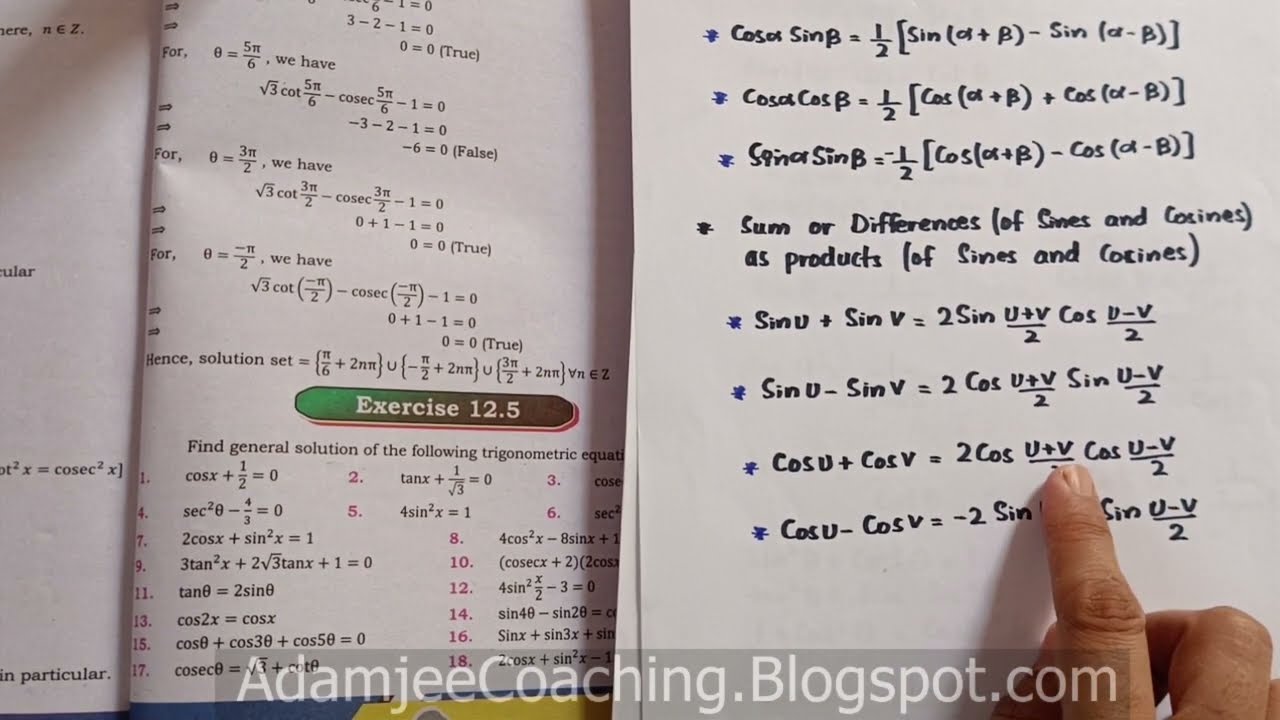 here, n ∈ Z.
cular
ot² x = cosec² x]
in particular.
⇒ − 1 = 0
⇒ 3 − 2 − 1 = 0
0 = 0 (True)
For, θ = 5π/6 , we have
√3 cot 5π/6 − cosec 5π/6 − 1 = 0
⇒ −3 − 2 − 1 = 0
⇒ −6 = 0 (False)
For, θ = 3π/2 , we have
√3 cot 3π/2 − cosec 3π/2 − 1 = 0
⇒ 0 + 1 − 1 = 0
⇒ 0 = 0 (True)
For, θ = −π/2 , we have
√3 cot (−π/2) − cosec (−π/2) − 1 = 0
⇒ 0 + 1 − 1 = 0
⇒ 0 = 0 (True)
Hence, solution set = {π/6 + 2nπ} ∪ {−π/2 + 2nπ} ∪ {3π/2 + 2nπ} ∀n ∈ Z
Exercise 12.5
Find general solution of the following trigonometric equati
1. cosx + 1/2 = 0 2. tanx + 1/√3 = 0 3. cose
4. sec²θ − 4/3 = 0 5. 4sin²x = 1 6. sec²
7. 2cosx + sin²x = 1 8. 4cos²x − 8sinx + 1
9. 3tan²x + 2√3tanx + 1 = 0 10. (cosecx + 2)(2cosx
11. tanθ = 2sinθ 12. 4sin² x/2 − 3 = 0
13. cos2x = cosx 14. sin4θ − sin2θ = co
15. cosθ + cos3θ + cos5θ = 0 16. Sinx + sin3x + sin
17. cosecθ = √3 + cotθ 18. 2cosx + sin²x − 1
* Cosα Sinβ = 1/2 [Sin (α + β) − Sin (α − β)]
* Cosα Cos β = 1/2 [Cos (α + β) + Cos (α − β)]
* Sinα Sin β = −1/2 [Cos(α+β) − Cos (α − β)]
* Sum or Differences (of Sines and Cosines)
as products (of Sines and Cosines)
* Sin U + Sin V = 2 Sin U+V/2 Cos U−V/2
* Sin U − Sin V = 2 Cos U+V/2 Sin U−V/2
* Cos U + Cos V = 2 Cos U+V Cos U−V/2
* Cos U − Cos V = −2 Sin Sin U−V/2
AdamjeeCoaching.Blogspot.com